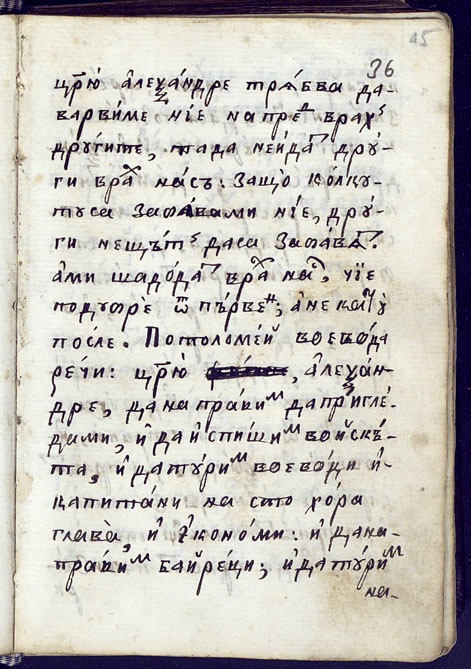 45
36
цр҃ю а҆леѯа́ндре трѧ́бва да-
варви́ме нїе напреⷣ враⷯ
дрꙋ́гите, тада неи́даⷮ дрꙋ́-
ги врⷯа насъ. Защо̀ ко́лкꙋ-
тꙋса Зафа́вами нїе, дрꙋ́-
ги нещѣ́тъ даса Зафа́вѧⷮ.
а҆ми щадо́даⷮ врⷯа на́съ, чїе
подꙋфрѐ ѿ пъ́рвеⁿ; а҆не
после. Потоломе́й воево́да
ре́чи: цр҃ю , а҆леѯа́н-
дре, да напра́виⷨ да пригле́-
дами, и҆ да и҆спи́шиⷨ во́йскѣ-
та, и҆ да тꙋ́риⷨ воево́ди и҆-
капита́ни на сто хо́ра
глава̀, и҆ і҆коно́ми. и҆ да на-
пра́виⷨ байре́ци; и҆ да тꙋ́риⷨ
на-